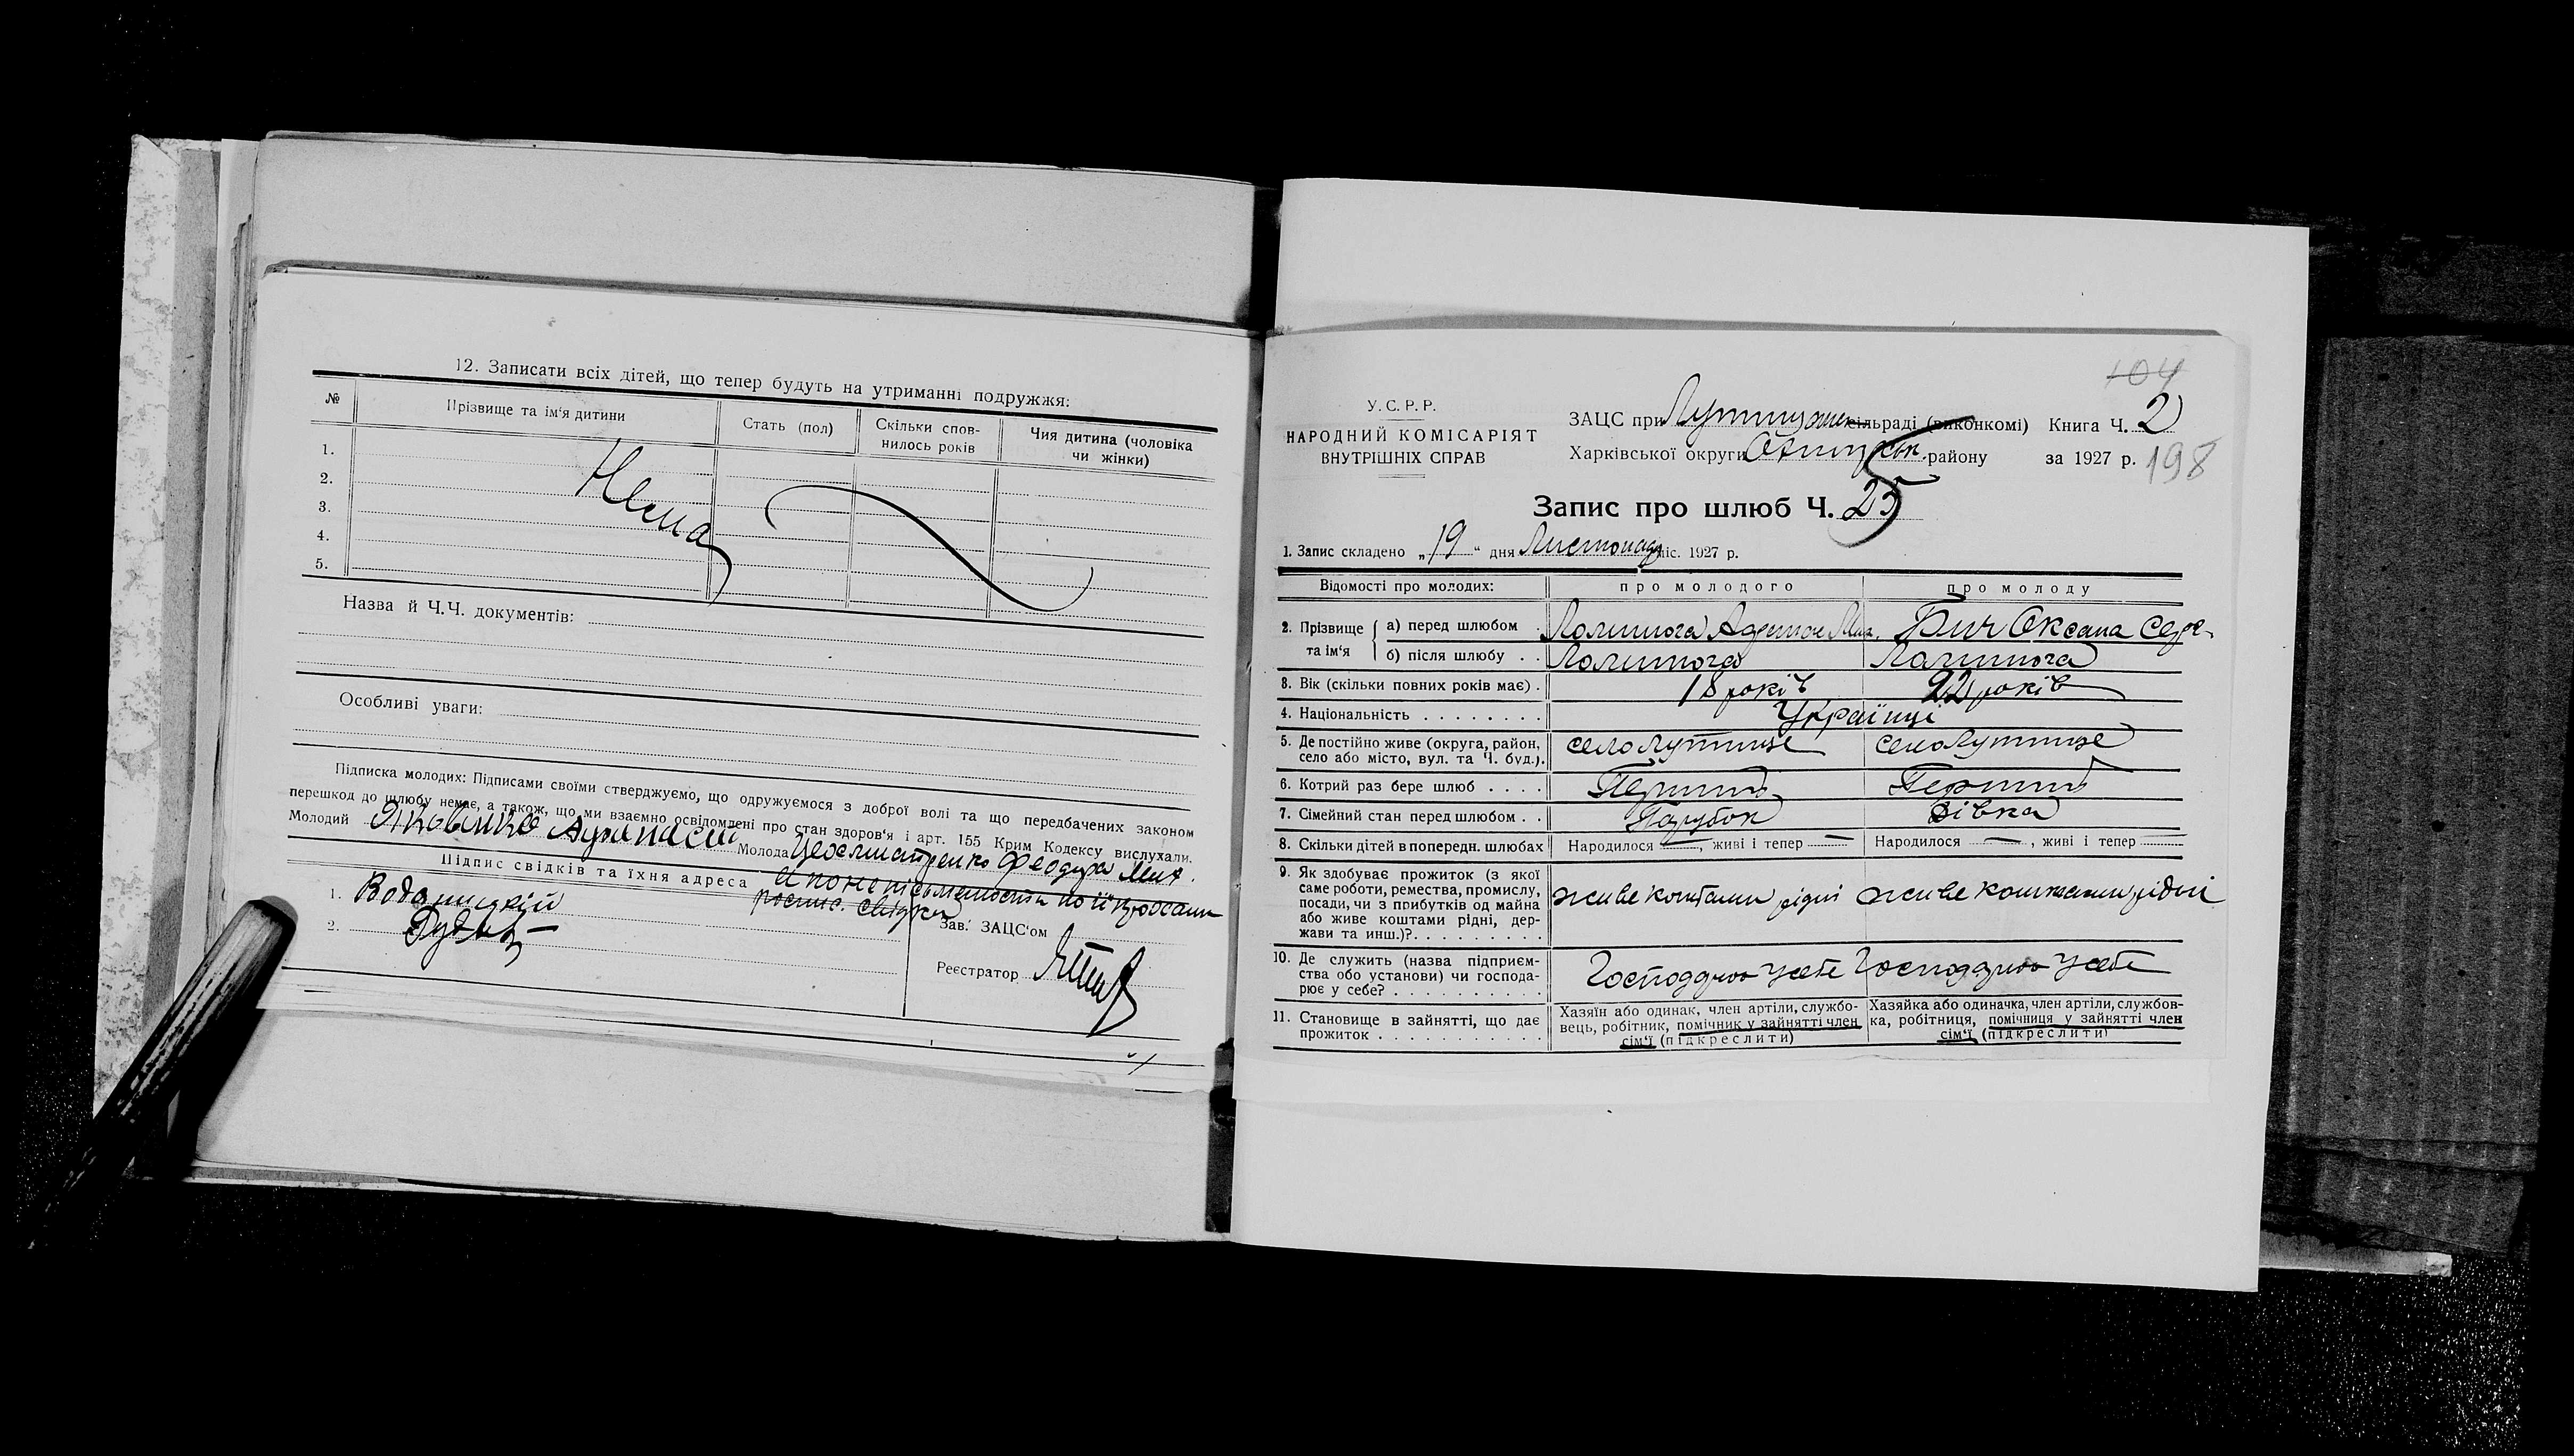 12. Записати всіх дітей, що тепер будуть на утриманні подружжя:
№ Прізвище та ім'я дитини Стать (пол) Скільки спов-нилось років Чия дитина (чоловіка чи жінки)
1.
2.
3.
4.
5.
Нема
Назва й Ч.Ч. документів:
Особливі уваги:
Підписка молодих: Підписами своїми стверджуємо, що одружуємося з доброї волі та що передбачених законом
перешкод до шлюбу немає, а також, що ми взаємно освідомлені про стан здоров'я і арт. 155 Крим Кодексу вислухали.
Молодий Молода Феодора Мих.
Підпис свідків та їхня адреса а по неписьменности по її прозбі
роспис. свідки
1. Водяницкій
2.
Зав. ЗАЦС'ом
Реєстратор
104
У.С.Р.Р.
НАРОДНИЙ КОМІСАРІЯТ
ВНУТРІШНІХ СПРАВ
ЗАЦС при Лутищанск сільраді (виконкомі) Книга Ч. 2
Харківської округи Охтирськ. району за 1927 р. 198
Запис про шлюб Ч. 25
1. Запис складено „19" дня Листопада міс. 1927 р.
Відомості про молодих: про молодого про молоду
2. Прізвище та ім'я
а) перед шлюбом Бич Оксана Серг.
б) після шлюбу
3. Вік (скільки повних років має) . 18 років 22 років
4. Національність . . . . . . . . Українці
5. Де постійно живе (округа, район, село Лутище село Лутище
село або місто, вул. та Ч. буд.).
6. Котрий раз бере шлюб . . . . Перший Перший
7. Сімейний стан перед шлюбом . . Парубок Дівка
8. Скільки дітей в попередн. шлюбах Народилося —, живі і тепер — Народилося —, живі і тепер
9. Як здобуває прожиток (з якої
саме роботи, ремества, промислу,
посади, чи з прибутків од майна живе коштами рідні живе коштами рідні
або живе коштами рідні, дер-
жави та инш.)?. . . . . . . . .
10. Де служить (назва підприєм-
ства або установи) чи господа- Господарює у себе Господарює у себе
рює у себе? . . . . . . . . . .
11. Становище в зайнятті, що дає
прожиток . . . . . . . . . . .
Хазяїн або одинак, член артіли, службо-
вець, робітник, помічник у зайнятті член
сім'ї (підкреслити)
Хазяйка або одиначка, член артіли, службов-
ка, робітниця, помічниця у зайнятті член
сім'ї (підкреслити)